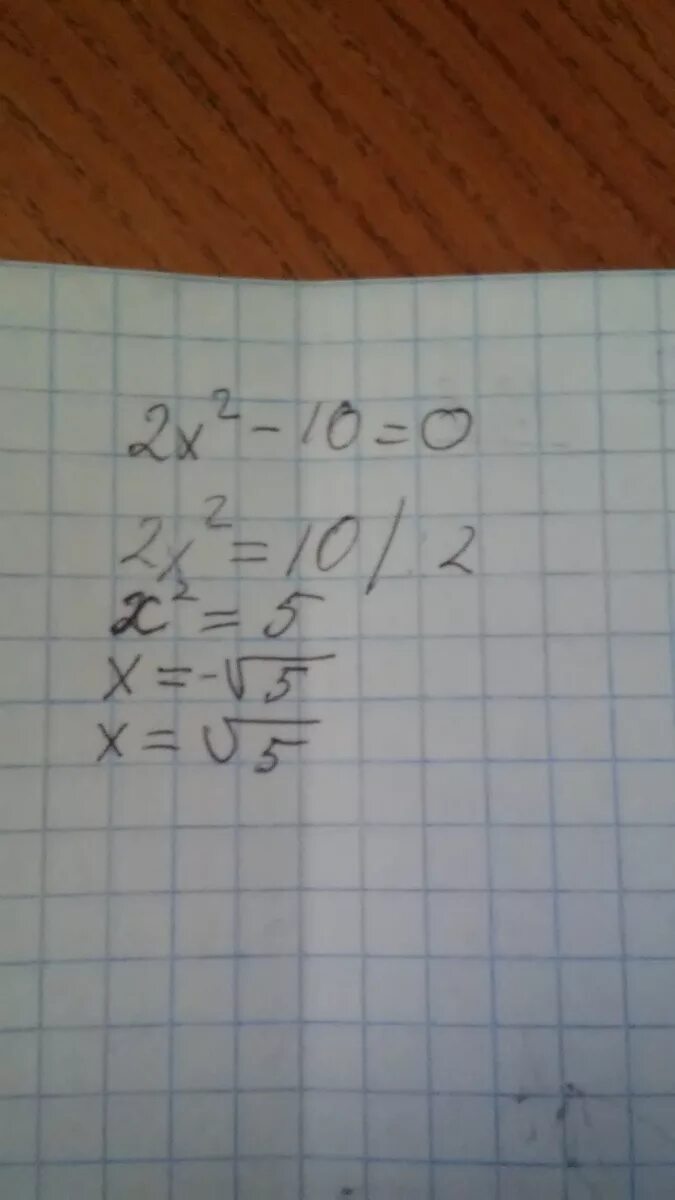 2x² - 10 = 0
2x² = 10 / 2
x² = 5
x = -√5
x = √5